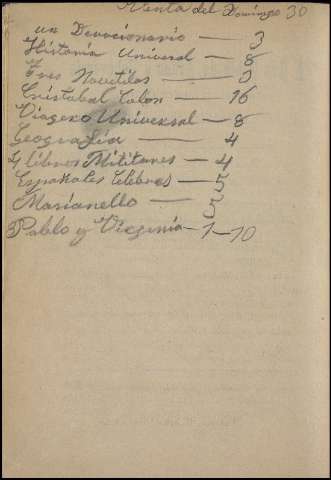 Venta del Domingo 30
un Devocionario — 3
Historia Universal — 8
Tres Novelitas — 3
Cristabal Colon — 16
Viagero Universal — 8
Geografia — 4
4 libros Militares — 4
Españoles Celebres — 5
Marianello — 5
3 Pablo y Virginia — 1—10